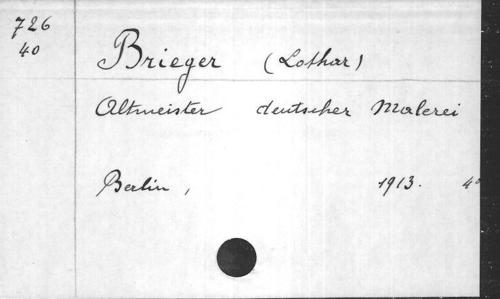 726
40
Brieger (Lothar)
Altmeister deutscher Malerei
Berlin, 1913. 4°